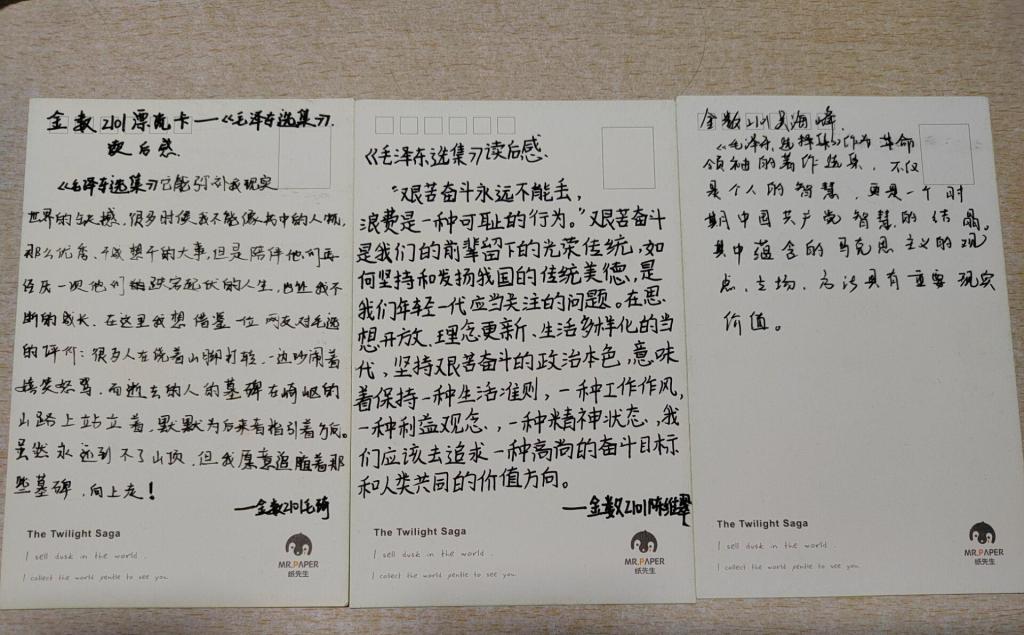 金数2101漂流卡——《毛泽东选集》
读后感
《毛泽东选集》它能弥补我现实
世界的缺憾,很多时候我不能像书中的人物,
那么优秀、干成想干的大事,但是陪伴他们再
经历一次他们的跌宕起伏的人生,也让我不
断的成长。在这里我想借鉴一位网友对毛选
的评价:很多人在绕着山脚打转,一边吵闹着
嬉笑怒骂,而逝去的人的墓碑在崎岖的
山路上站立着,默默为后来者指引着方向。
虽然永远到不了山顶,但我愿意追随着那
些墓碑,向上走!
——金数2101毛琦
The Twilight Saga
I sell dusk in the world .
I collect the world pentle to see you.
MR.PAPER
纸先生
《毛泽东选集》读后感.
“艰苦奋斗永远不能丢,
浪费是一种可耻的行为。”艰苦奋斗
是我们的前辈留下的光荣传统,如
何坚持和发扬我国的传统美德,是
我们年轻一代应当关注的问题。在思
想开放、理念更新、生活多样化的当
代,坚持艰苦奋斗的政治本色,意味
着保持一种生活准则,一种工作作风,
一种利益观念,一种精神状态,我
们应该去追求一种高尚的奋斗目标
和人类共同的价值方向。
——金数2101陈维翠
The Twilight Saga
I sell dusk in the world .
I collect the world pentle to see you.
MR.PAPER
纸先生
金数2101吴海峰
《毛泽东选择集》作为革命
领袖的著作选集,不仅
是个人的智慧,更是一个时
期中国共产党智慧的结晶。
其中蕴含的马克思主义的观
点、立场、方法具有重要现实
价值。
The Twilight Saga
I sell dusk in the world .
I collect the world pentle to see you.
MR.PAPER
纸先生